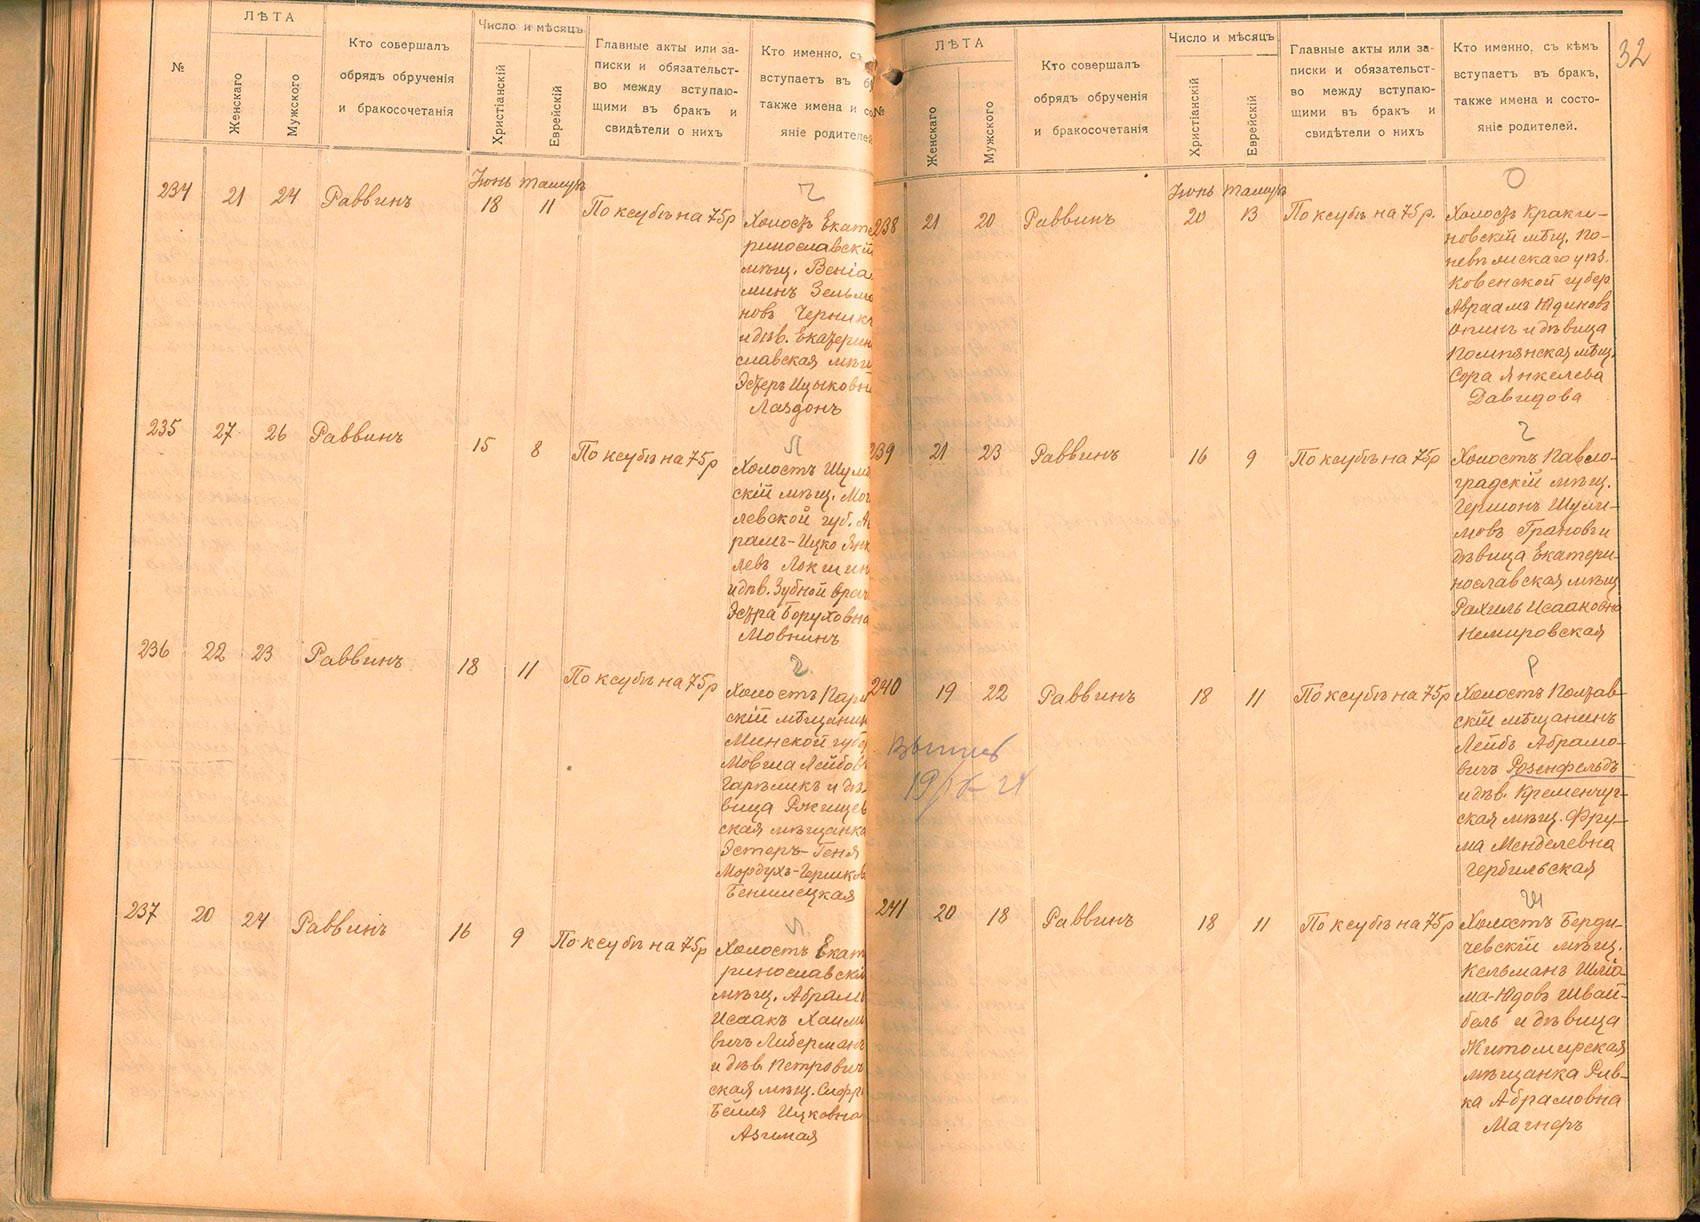 №
ЛѢТА
Женскаго
Мужского
Кто совершалъ
обрядъ обручения
и бракосочетанія
Число и мѣсяцъ
Христіанскій
Еврейскій
Главные акты или за-
писки и обязательст-
во между вступаю-
щими въ бракъ и
свидѣтели о нихъ
Кто именно, съ
вступаетъ въ
также имена и
яніе родителей
234 21 24 Раввинъ
Іюнь Тамузъ
18 11
По ксубѣ на 75р
Ч
Холостъ Екате
ринославскій
мѣщ. Веніа
минъ Зельма
новъ Черник
и дѣв. Екатерин
славская мѣщ
Эстеръ Ицыковн
Лаздонъ
235 27 26 Раввинъ 15 8 По ксубѣ на 75р
Л
Холостъ Шумя
скій мѣщ. Мог
левской губ. А
рамъ-Ицко Янк
левъ Локшин
и дѣв. Зубной врач
Эстра Боруховна
Мовнинъ
236 22 23 Раввинъ 18 11 По ксубѣ на 75р
Холостъ Пари
скій мѣщанин
Минской губ
Мовша Лейбов
Гарѣликъ и дѣ
вица Ржищев
ская мѣщанка
Эстеръ-Геня
Мордухъ-Гершков
Бенишецкая
237 20 24 Раввинъ 16 9 По ксубѣ на 75р
Л.
Холостъ Екат
ринославскі
мѣщ. Абрамъ
Исаакъ Хаимо
вичъ Либерманъ
и дѣв. Петрович
ская мѣщ. Сифр
Бейля Ицковна
Азимая
32
№
ЛѢТА
Женскаго
Мужского
Кто совершалъ
обрядъ обручения
и бракосочетанія
Число и мѣсяцъ
Христіанскій
Еврейскій
Главные акты или за-
писки и обязательст-
во между вступаю-
щими въ бракъ и
свидѣтели о нихъ
Кто именно, съ кѣмъ
вступаетъ въ бракъ,
также имена и состо-
яніе родителей.
238 21 20 Раввинъ
Іюнь Тамузъ
20 13
По ксубѣ на 75р.
О
Холостъ Краки-
новскій мѣщ. По-
невѣжскаго уѣз.
Ковенской губер
Авраамъ Юдиновъ
Опинъ и дѣвица
Помпянская мѣщ.
Сора Янкелева
Давидова
239 21 23 Раввинъ 16 9 По ксубѣ на 75р
Г
Холостъ Павло-
градскій мѣщ.
Гершонъ Шули-
мовъ Грановъ и
дѣвица Екатери-
нославская мѣщ
Рахиль Исааковна
Немировская
240 19 22 Раввинъ 18 11 По ксубѣ на 75р
Р
Холостъ Полтав-
скій мѣщанинъ
Лейбъ Абрамо-
вичъ Розенфельдъ
и дѣв. Кременчуг-
ская мѣщ. Фру-
ма Менделевна
Гербильская
241 20 18 Раввинъ 18 11 По ксубѣ на 75р
Ш
Холостъ Берди-
чевскій мѣщ.
Кельманъ Шліо-
ма-Юдовъ Швай-
бель и дѣвица
Житомирская
мѣщанка Рив-
ка Абрамовна
Магнеръ